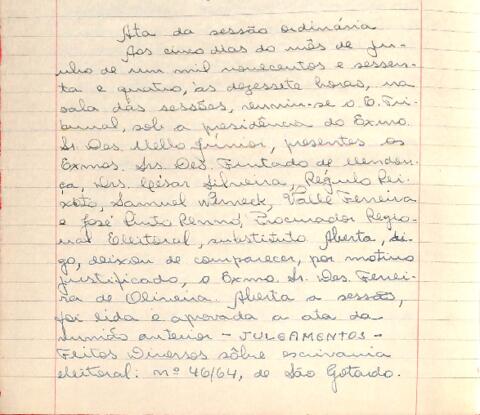 Ata da sessão ordinária
Aos cinco dias do mês de ju-
nho de um mil novecentos e sessen-
ta e quatro, às dezessete horas, na
sala das sessões, reuniu-se o E. Tri-
bunal, sob a presidência do Exmo.
Sr. Des. Mello Júnior, presentes os
Exmos. Srs. Des. Furtado de Mendon-
ça, Drs. César Silveira, Régulo Pei-
xoto, Samuel Werneck, Valle Ferreira
e José Pinto Renno, Procurador Regio-
nal Eleitoral, substituto. Aberta, di-
go, deixou de comparecer, por motivo
justificado, o Exmo. Sr. Des. Ferrei-
ra de Oliveira. Aberta a sessão,
foi lida e aprovada a ata da
reunião anterior - JULGAMENTOS -
Feitos Diversos sôbre escrivania
eleitoral: nº 46/64, de São Gotardo.